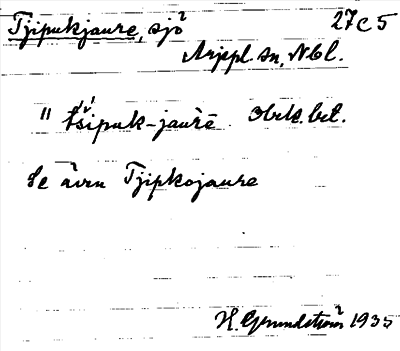 Tjipukjaure, sjö 27C5
Arjepl. sn, Nbl.
" tšipuk-jaurē. Obek. bet.
Se även Tjipkojaure
H. Grundström 1935